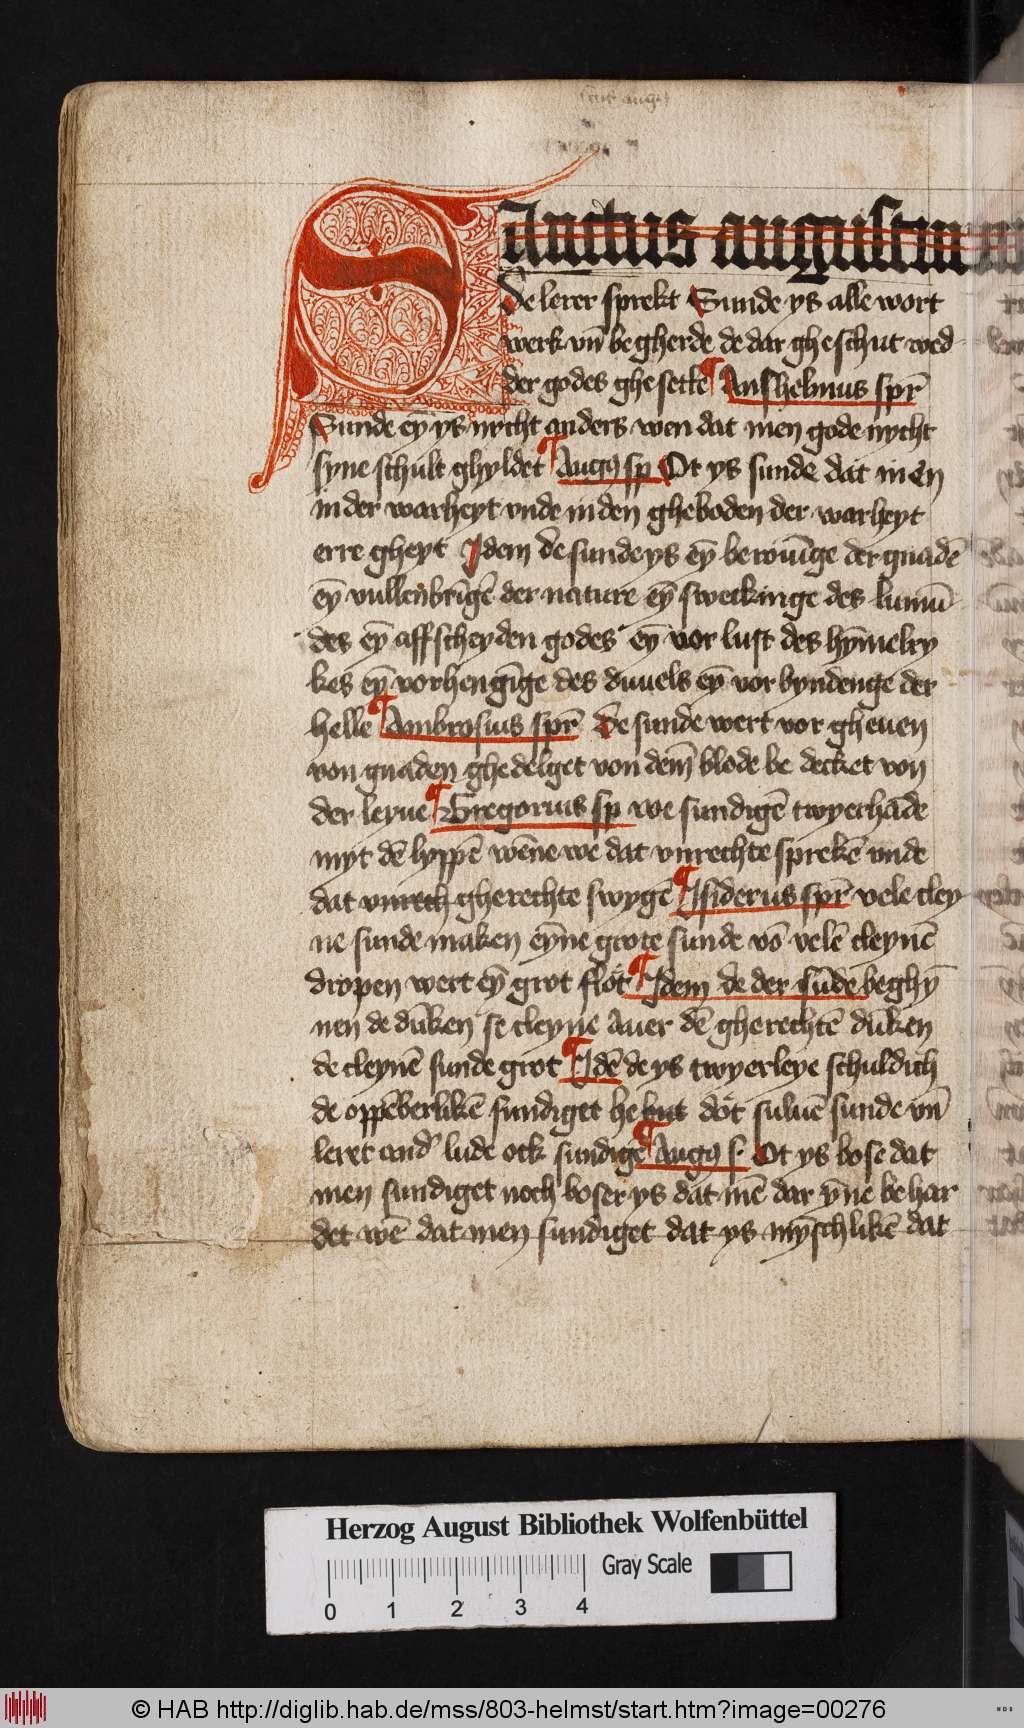 SAnctus augustinus
de lerer sprekt Sunde ys alle wort
werk vn̄ begherde de dar gheschut wed
der godes ghesette Anshelmus spr̄
Sunde ey̅ ys nycht anders wen dat men gode nycht
syne schult ghyldet Augꝯ sp Ot ys sunde dat men
in der warheyt vnde in den gheboden der warheyt
erre gheyt Idem de sunde ys ey̅ berouīge der gnadē
ey̅ vullenbrīgē der nature ey̅ swekinge des lumū
des ey̅ affscheyden godes ey̅ vorlust des hȳmelry
kes ey̅ vorhengīge des duuels ey̅ vorbyndenge der
helle Ambrosius spr̄ de sunde wert vorgheuen
von gnaden ghedelget von dem̄ blode bedecket von
der leyue Gregorius sp we sundigē twyerhāde
myt dē lyppē wēne we dat vnrechte sprekē vnde
dat vnrech gherechte swygē Isiderus spr̄ vele cley
ne sunde maken eyne grote sunde vō velē cleynē
dropen wert ey̅ grot flot Idem de der sūde beghȳ
nen de dūken se cleyne Auer dē gherechtē dūken
de cleynē sunde grot Idē de ys twyerleye schuldich
de oppēberlikē sundiget he dot suluē sunde vn̄
leret and̄ lude ock sundigē Augꝯ s. Ot ys bose dat
men sundiget noch boser ys dat mē dar ȳne behar
det wē dat men sundiget dat ys mȳschlikē dat
Herzog August Bibliothek Wolfenbüttel
Gray Scale
0 1 2 3 4
© HAB http://diglib.hab.de/mss/803-helmst/start.htm?image=00276